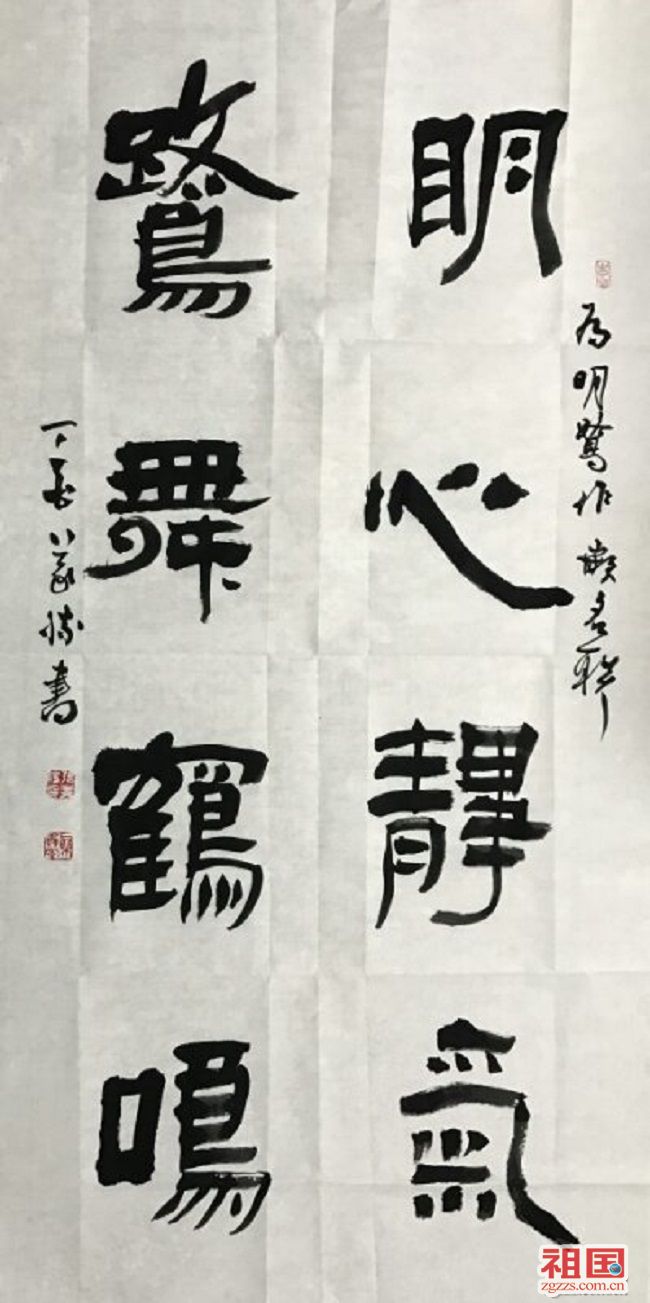 为明鷺作嵌名联
明心靜氣
鷺舞鶴鳴
丁酉書
祖国
zgzzs.com.cn